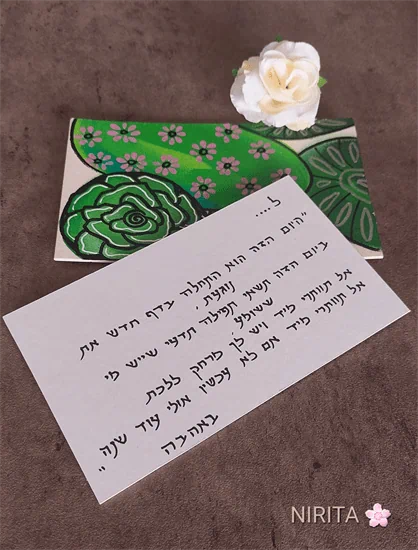 ל....
"היום הזה הוא התחלה בדף חדש את
נוגעת,
ביום הזה תשאי תפילה תדעי שיש מי
ששומע,
אל תוותרי מיד ויש לך מרחק ללכת
אל תוותרי מיד אם לא עכשיו אולי עוד שנה"
באהבה
NIRITA